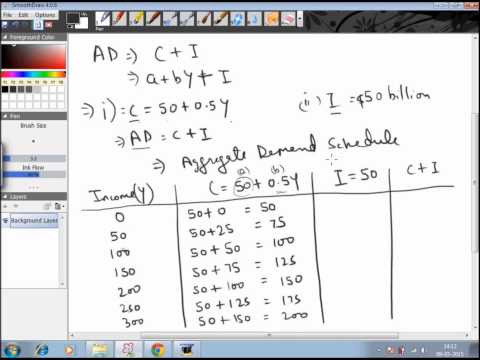 SmoothDraw 4.0.8
Foreground Color
Pen
Brush Size
3.3
Ink Flow
Layers
Background Layer
AD ⇒ C + I
⇒ a + bY + I
⇒ i) C = 50 + 0.5Y
(ii) I = $50 billion
⇒ AD = C + I
⇒ Aggregate Demand Schedule
(a) (b)
Income(Y) C = 50 + 0.5Y I = 50 C + I
0 50 + 0 = 50
50 50 + 25 = 75
100 50 + 50 = 100
150 50 + 75 = 125
200 50 + 100 = 150
250 50 + 125 = 175
300 50 + 150 = 200
14:12